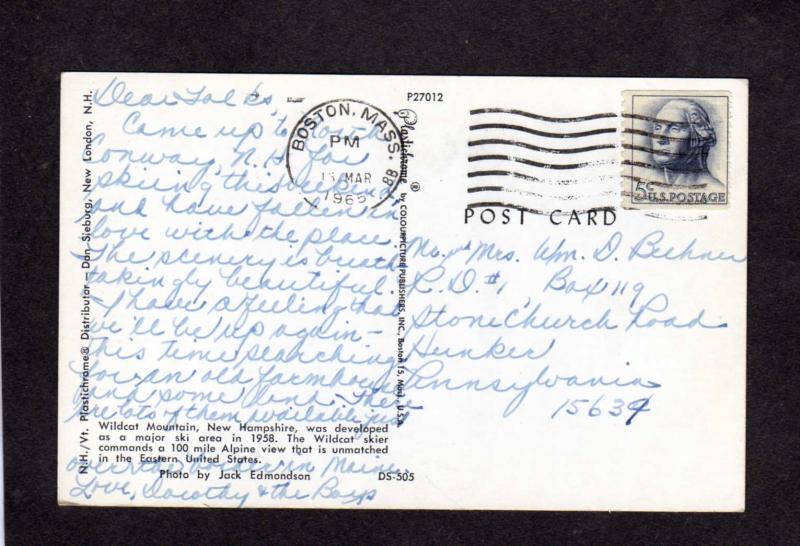 Dear Folks,
Came up to North
Conway, N.H. for
skiing this weekend
and have fallen in
love with the place.
The scenery is breath
takingly beautiful.
I have a feeling that
we'll be up again -
this time searching
for an old farmhouse
and some land. There
are lots of them available just
over the border in Maine.
Love, Dorothy & the Boys
Wildcat Mountain, New Hampshire, was developed
as a major ski area in 1958. The Wildcat skier
commands a 100 mile Alpine view that is unmatched
in the Eastern United States.
Photo by Jack Edmondson
DS-505
N.H./Vt. Plastichrome® Distributor — Dan Sieburg, New London, N.H.
P27012
Plastichrome ®
by COLOURPICTURE PUBLISHERS, INC., Boston 15, Mass., U.S.A.
BOSTON, MASS.
PM
MAR
1965
88
5c
U.S. POSTAGE
POST CARD
Mr. and Mrs. Wm. D.
R.D. #1 Box 119
Stone Church Road
Hunker
Pennsylvania
15639